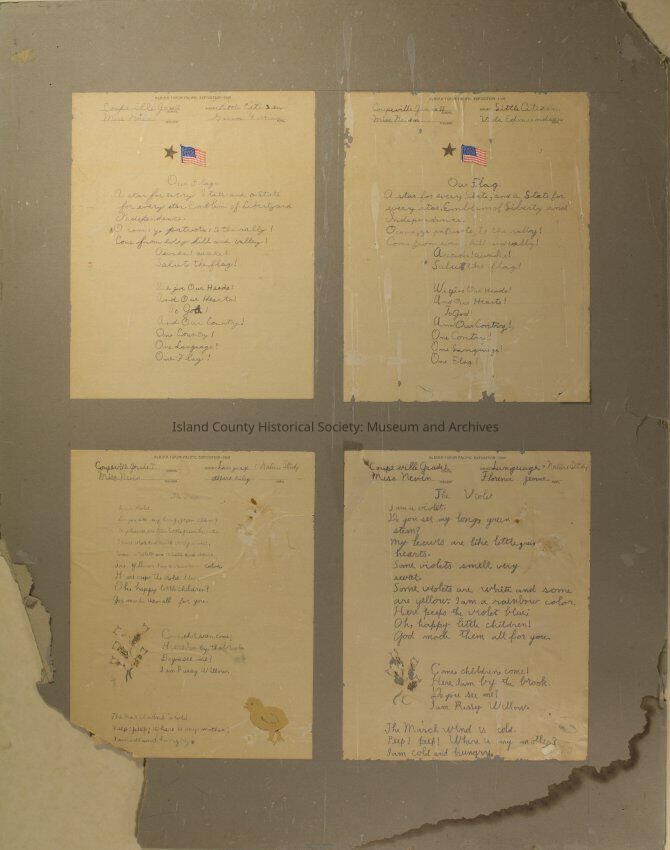 ALASKA-YUKON-PACIFIC EXPOSITION-1909
Coupeville
Little Citizen
Miss
Our Flag.
A star for every State and a State
for every star. Emblem of Liberty and
Independence.
O come, ye patriots, to the rally!
Come from every hill and valley!
Awake! awake!
Salute the flag!
We give Our Heads!
And Our Hearts!
To God!
And Our Country!
One Country!
One Language!
One Flag!
ALASKA-YUKON-PACIFIC EXPOSITION-1909
Coupeville
Little Citizen
Miss Nevin
Our Flag.
A star for every State, and a State for
every star, Emblem of Liberty and
Independence.
O come, ye patriots, to the rally!
Come from every hill and valley!
Awake! awake!
Salute the flag!
We give Our Heads!
And Our Hearts!
To God!
And Our Contry!
One Contry!
One Language!
One Flag!
Island County Historical Society: Museum and Archives
ALASKA-YUKON-PACIFIC EXPOSITION-1909
Coupeville Grade
Language & Nature Study
Miss Nevin
The
Some violets smell very sweet.
Some violets are white and some
are yellow. I am a rainbow color.
Here peeps the violet blue.
Oh, happy little children!
God made them all for you.
Come children come!
Here I am by the brook
Do you see me!
I am Pussy Willow.
The March wind is cold.
Peep! peep! Where is my mother?
I am cold and hungry.
ALASKA-YUKON-PACIFIC EXPOSITION-1909
Coupeville Grade
Language & Nature Study
Miss Nevin
Florence
The Violet
I am a violet.
Do you see my long green
stem?
My leaves are like little green
hearts.
Some violets smell very
sweet.
Some violets are white and some
are yellow. I am a rainbow color.
Here peeps the violet blue;
Oh, happy little children!
God made them all for you.
Come children come!
Here I am by the brook.
Do you see me!
I am Pussy Willow.
The March wind is cold.
Peep! peep! Where is my mother?
I am cold and hungry.